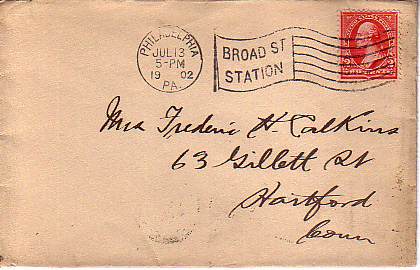 PHILADELPHIA
JUL 13
5-PM
19 02
PA.
BROAD ST
STATION
2 2
TWO CENTS
Mrs Frederic H. Calkins
63 Gillett St
Hartford
Conn